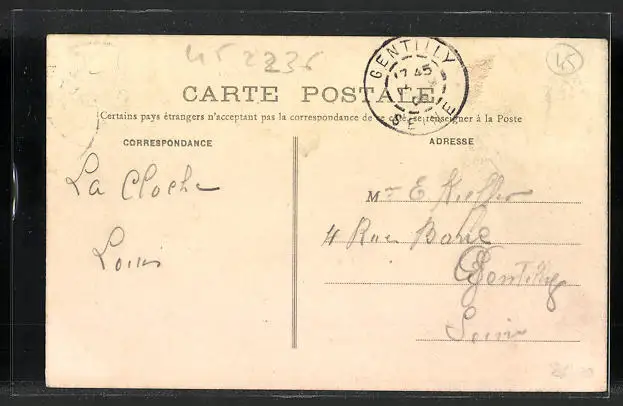 452236
45
GENTILLY
17 45
SEINE
CARTE POSTALE
(Certains pays étrangers n'acceptent pas la correspondance de ce côté, se renseigner à la Poste
CORRESPONDANCE
ADRESSE
La Cloche
Louis
Mr E Kieffer
4 Rue
Gentilly
Seine